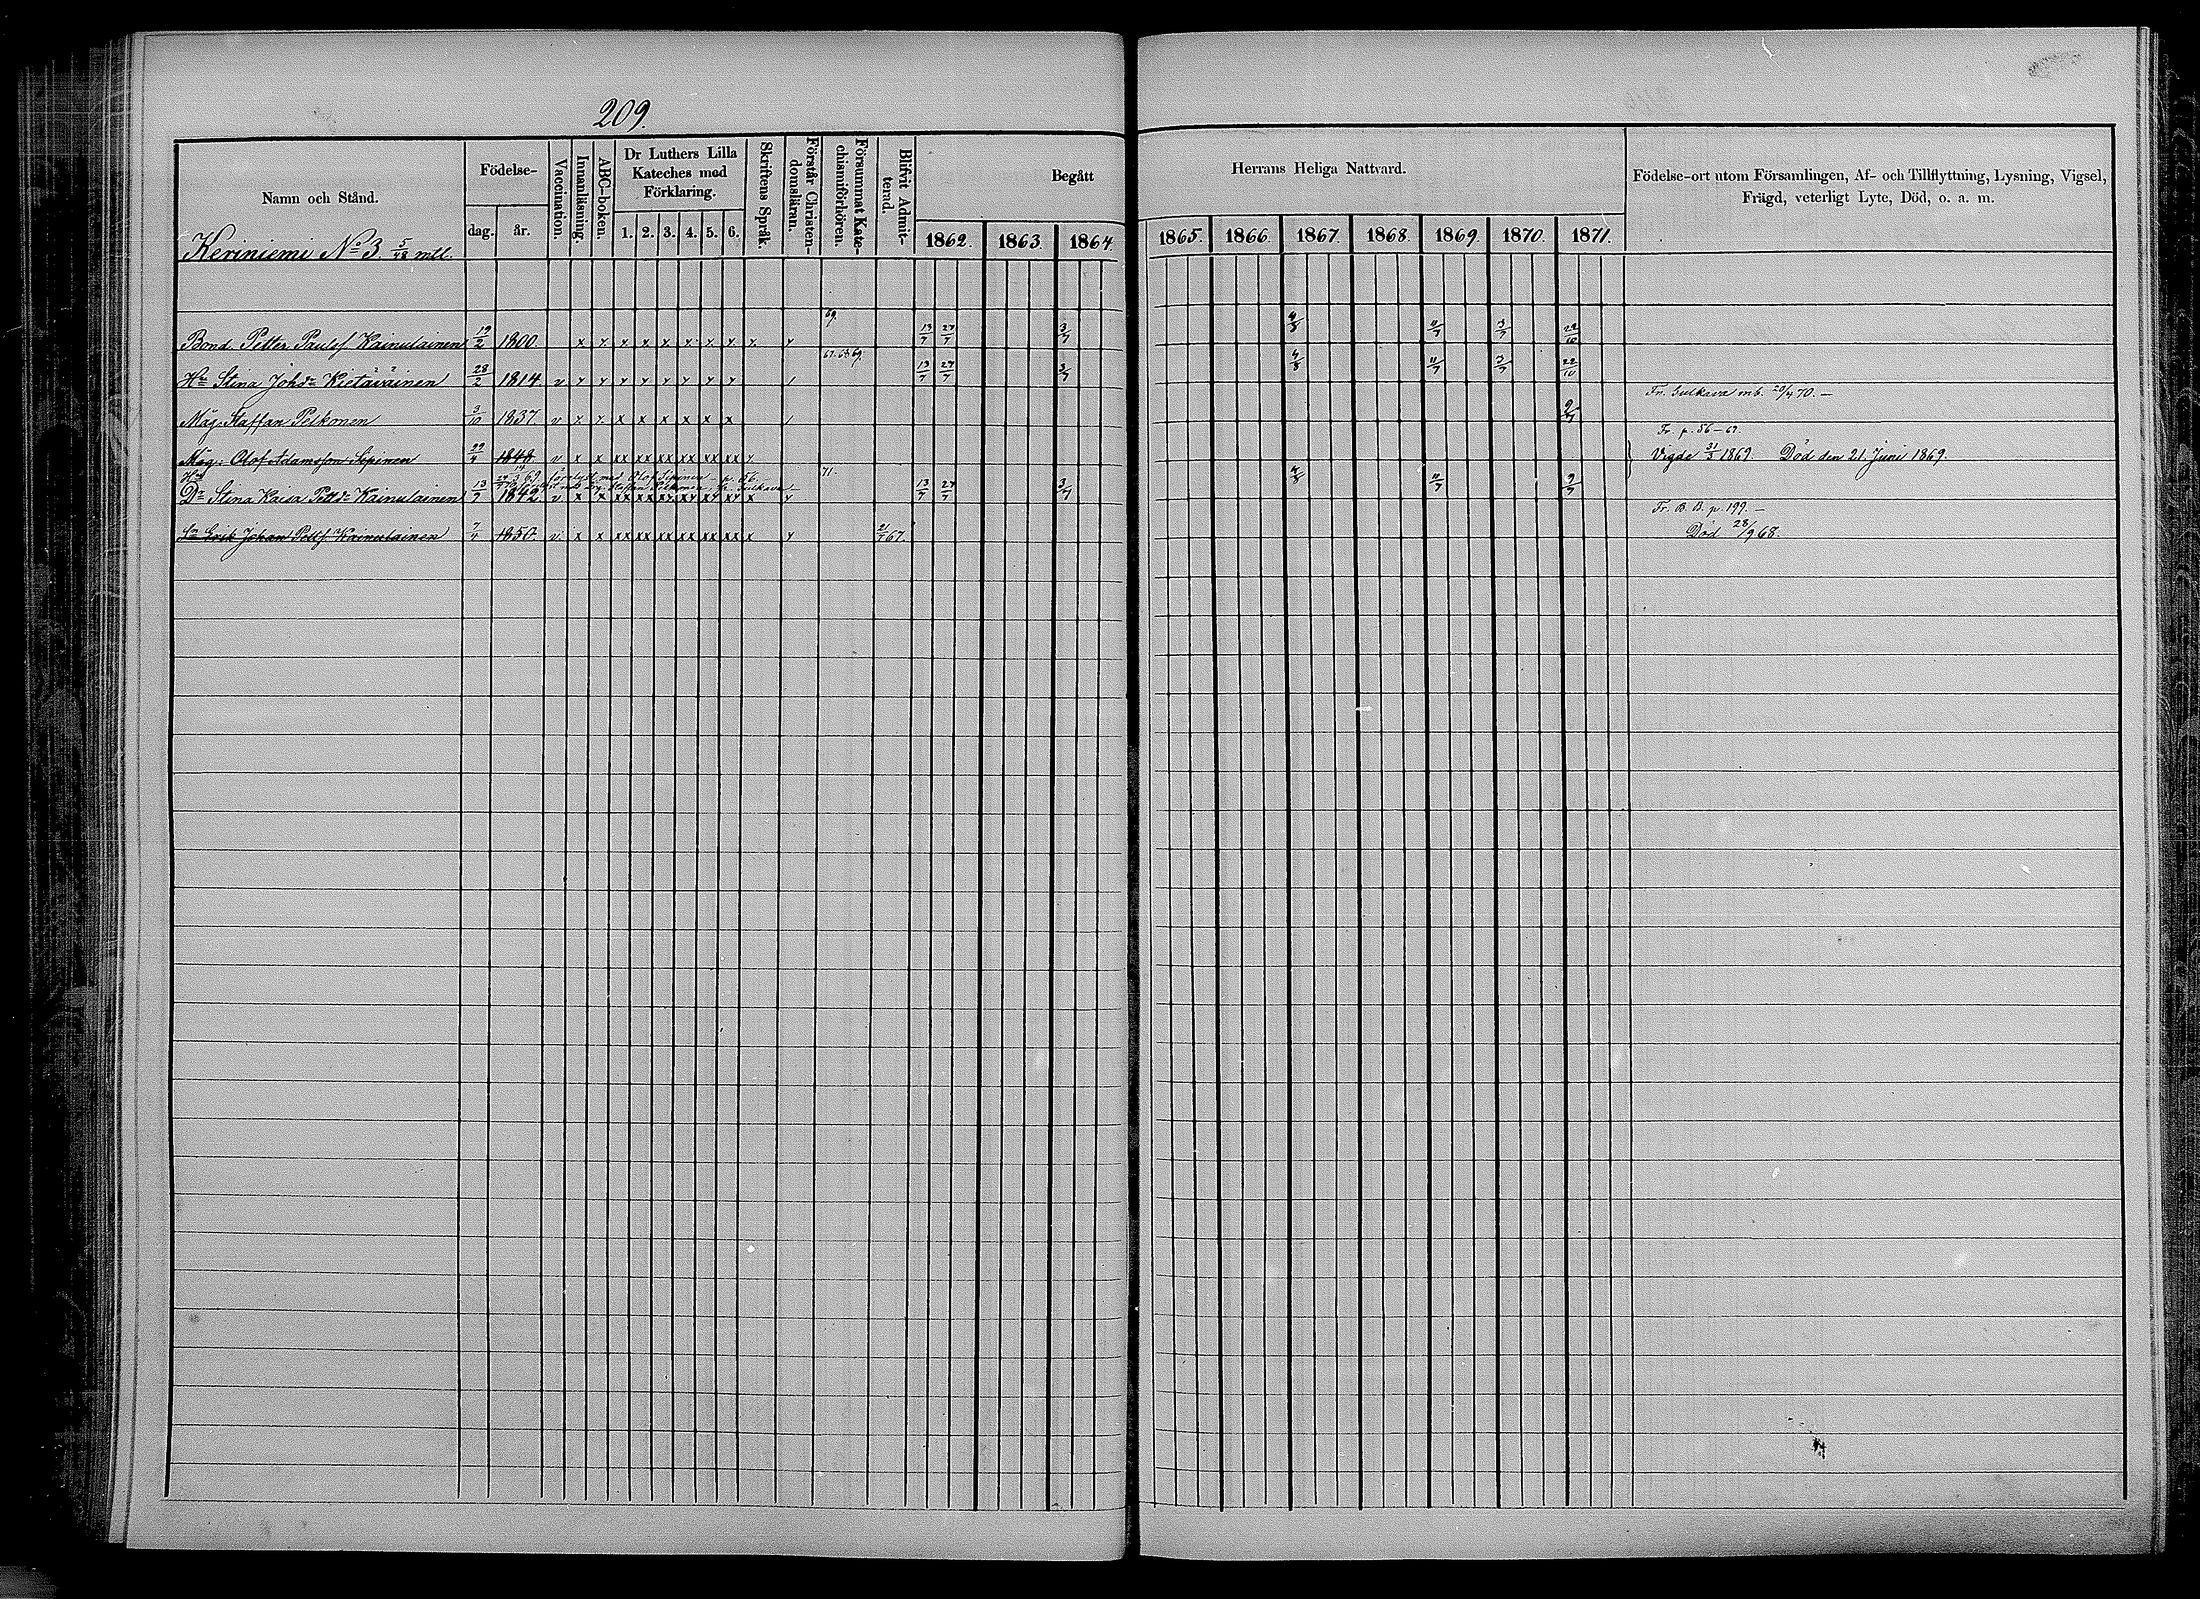 209.
Namn och Stånd.
Födelse-
dag. år.
Vaccination.
Innanläsning.
ABC-boken.
Dr Luthers Lilla
Kateches med
Förklaring.
1. 2. 3. 4. 5. 6.
Skriftens Språk.
Förstår Christen-
domsläran.
Försummat Kate-
chismiförhören.
Blifvit Admit-
terad.
Begått
Herrans Heliga Nattvard.
1862. 1863. 1864. 1865. 1866. 1867. 1868. 1869. 1870. 1871.
Födelse-ort utom Församlingen, Af- och Tillflyttning, Lysning, Vigsel,
Frägd, veterligt Lyte, Död, o. a. m.
Keriniemi No 3. 5/48 mtl.
Bond. Petter Paulsf Kainulainen 19/2 1800. x x x x x x x x x x 69. 13/7 27/7 3/7 4/8 11/7 3/7 22/10
Hu Stina Johdr Kietäväinen 28/2 1814 v x x x x x x x x / 67. 68. 69. 13/7 27/7 3/7 4/8 11/7 3/7 22/10
Måg. Staffan Pelkonen 3/10 1837. v x x x x x x x x / 9/7 Fr. Sulkava mb. 20/4 70. —
Måg. Olof Adamsson Sipinen 29/4 1848. v x x xx xx xx xx xx xx x Fr. p. 56 - 69.
Vigde 31/3 1869. Död den 21. Juni 1869.
Hu
Olof Sipinen - p. 56.
Staffan Pelkonen fr. Sulkava
Dr Stina Kaisa Pettdr Kainulainen 13/7 1842 v x x xx xx xx xx xx xx x x 71. 13/7 27/7 3/7 4/8 11/7 9/7
Sn Erik Johan Pettsf. Kainulainen 7/4 1850. v. x x xx xx xx xx xx xx x x 21/7 67. Fr. B. B. p. 199. —
Död 28/9 68.